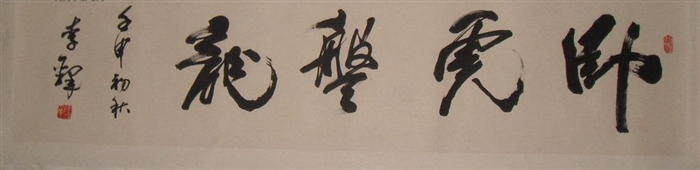 卧虎盤龍
壬申初秋
李鐸